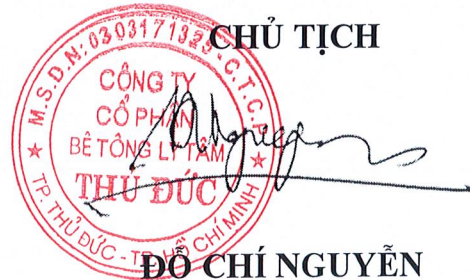 CHỦ TỊCH
M.S.D.N: 0303171325 - C.T.C.P
CÔNG TY
CỔ PHẦN
BÊ TÔNG LY TÂM
THỦ ĐỨC
TP. THỦ ĐỨC - TP. HỒ CHÍ MINH
ĐỖ CHÍ NGUYỄN